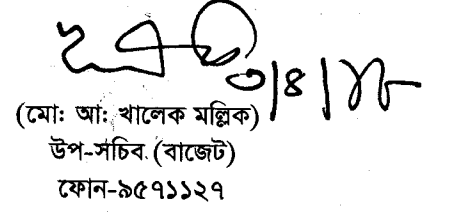 ৩/৪/১৮
(মোঃ আঃ খালেক মল্লিক)
উপ-সচিব (বাজেট)
ফোন-৯৫৭১১২৭